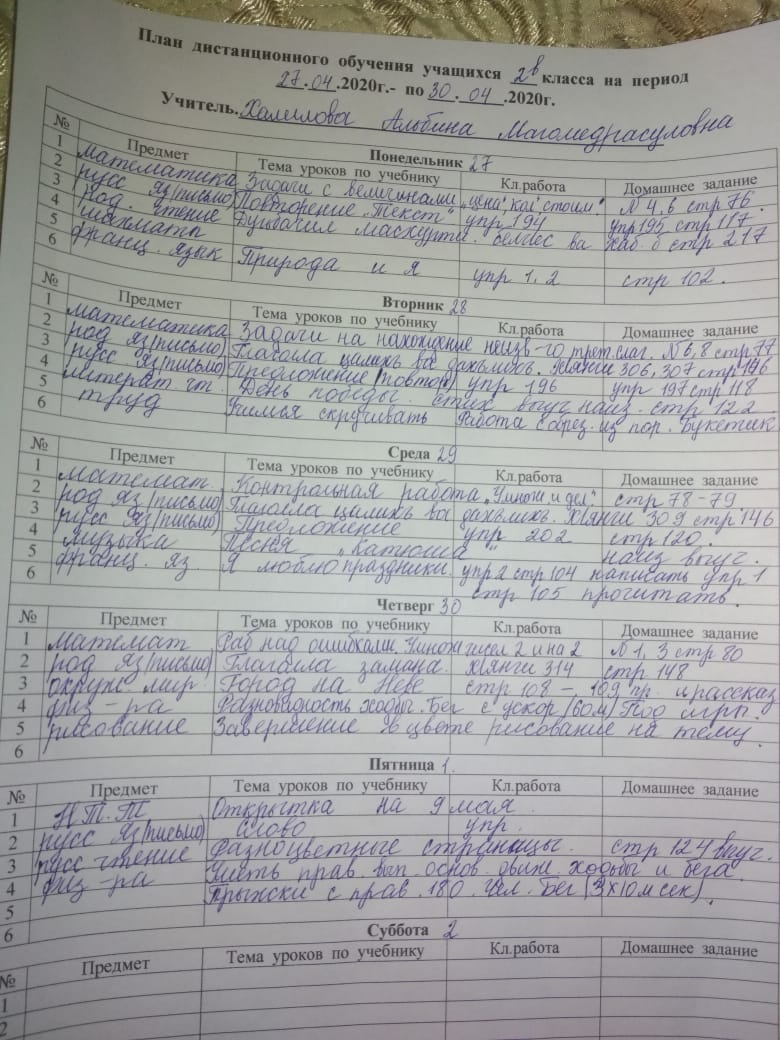 План дистанционного обучения учащихся 2в класса на период
27.04.2020г.- по 30.04.2020г.
Учитель. Халилова Альбина Магомедрасуловна
№ Предмет Понедельник 27
Тема уроков по учебнику Кл.работа Домашнее задание
1 математика Задачи с величинами „цена", кол. стоим." №4, 6 стр 76
2 русс яз (письмо) Повторение „Текст" упр 194 упр 195 стр 117
3 род. чтение ва стр 217
4 шахматы
5 франц. язык Природа и я упр 1. 2 стр 102.
6
Вторник 28
№ Предмет Тема уроков по учебнику Кл.работа Домашнее задание
1 математика Задачи на нахождение неизв-го трет. слаг. №6, 8 стр 77
2 род яз (письмо) Глагола цалихъ ва 306, 307 стр 146
3 русс яз (письмо) Предложение (повтор) упр 196 упр 197 стр 118
4 литерат чт. День победы. стих выуч наиз. стр 122.
5 труд Учимся скручивать Работа с обрез. из пор. Букетик
6
Среда 29
№ Предмет Тема уроков по учебнику Кл.работа Домашнее задание
1 математ. Контрольная работа „Умнож и дел." стр 78-79.
2 род яз (письмо) Глагола цалихъ ва 309 стр. 146
3 русс яз (письмо) Предложение упр 202 стр 120.
4 музыка Песня „Катюша" наиз выуч.
5 франц. яз. Я люблю праздники. упр 2 стр 104 написать упр 1
6 стр 105 прочитать.
Четверг 30
№ Предмет Тема уроков по учебнику Кл.работа Домашнее задание
1 математ Раб над ошибками. Умнож чисел 2 и на 2 №1, 3 стр 80
2 род яз (письмо) Глагола замана. 314 стр 148
3 окруж. мир. Город на Неве стр 108 - 109 пр. и рассказ
4 физ-ра Разновидность ходьбы. Бег с ускор (60м) Под игры.
5 рисование Завершение в цвете рисование на тему.
6
Пятница 1.
№ Предмет Тема уроков по учебнику Кл.работа Домашнее задание
1 Н Т. Т Открытка на 9 мая.
2 русс яз (письмо) Слово упр.
3 русс чтение Разноцветные страницы. стр 124 выуч.
4 физ-ра Уметь прав. вып. основ. движ. ходьбы и бега.
5 Прыжки с прав. 180. Чел. Бег (3х10м сек).
6
Суббота 2
№ Предмет Тема уроков по учебнику Кл.работа Домашнее задание
1
2